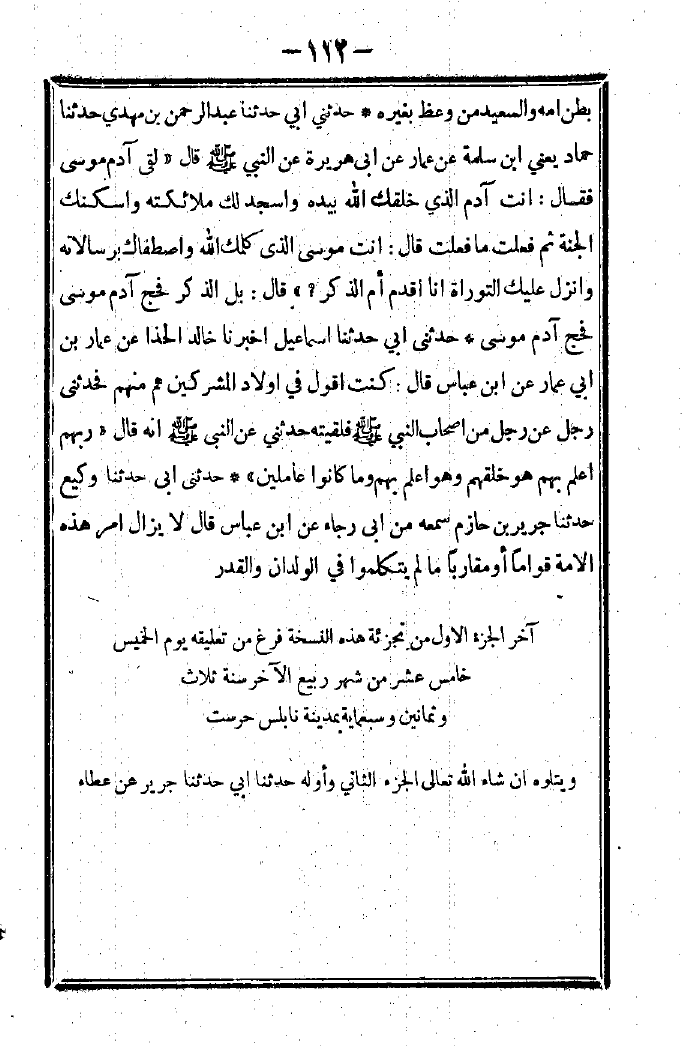 — ١٢٢ —
بطن امه والسعيد من وعظ بغيره * حدثني ابي حدثنا عبد الرحمن بن مهدي حدثنا
حماد يعني ابن سلمة عن عمار عن ابي هريرة عن النبي ﷺ قال « لقى آدم موسى
فقال : انت آدم الذي خلقك الله بيده واسجد لك ملائكته واسكنك
الجنة ثم فعلت ما فعلت قال : انت موسى الذى كلمك الله واصطفاك برسالاته
وانزل عليك التوراة انا اقدم أم الذكر ? » قال : بل الذكر فحج آدم موسى
فحج آدم موسى * حدثني ابي حدثنا اسماعيل اخبرنا خالد الحذا عن عمار بن
ابي عمار عن ابن عباس قال : كنت اقول في اولاد المشركين هم منهم فحدثنى
رجل عن رجل من اصحاب النبي ﷺ فلقيته حدثني عن النبي ﷺ انه قال « ربهم
اعلم بهم هو خلقهم وهو اعلم بهم وما كانوا عاملين » * حدثنى ابى حدثنا وكيع
حدثنا جرير بن حازم سمعه من ابى رجاء عن ابن عباس قال لا يزال امر هذه
الامة قواماً أو مقارباً ما لم يتكلموا في الولدان والقدر
آخر الجزء الاول من تجزئة هذه النسخة فرغ من تعليقه يوم الخميس
خامس عشر من شهر ربيع الآخر سنة ثلاث
وثمانين وسبعماية بمدينة نابلس حرست
ويتلوه ان شاء الله تعالى الجزء الثاني وأوله حدثنا ابي حدثنا جرير عن عطاء